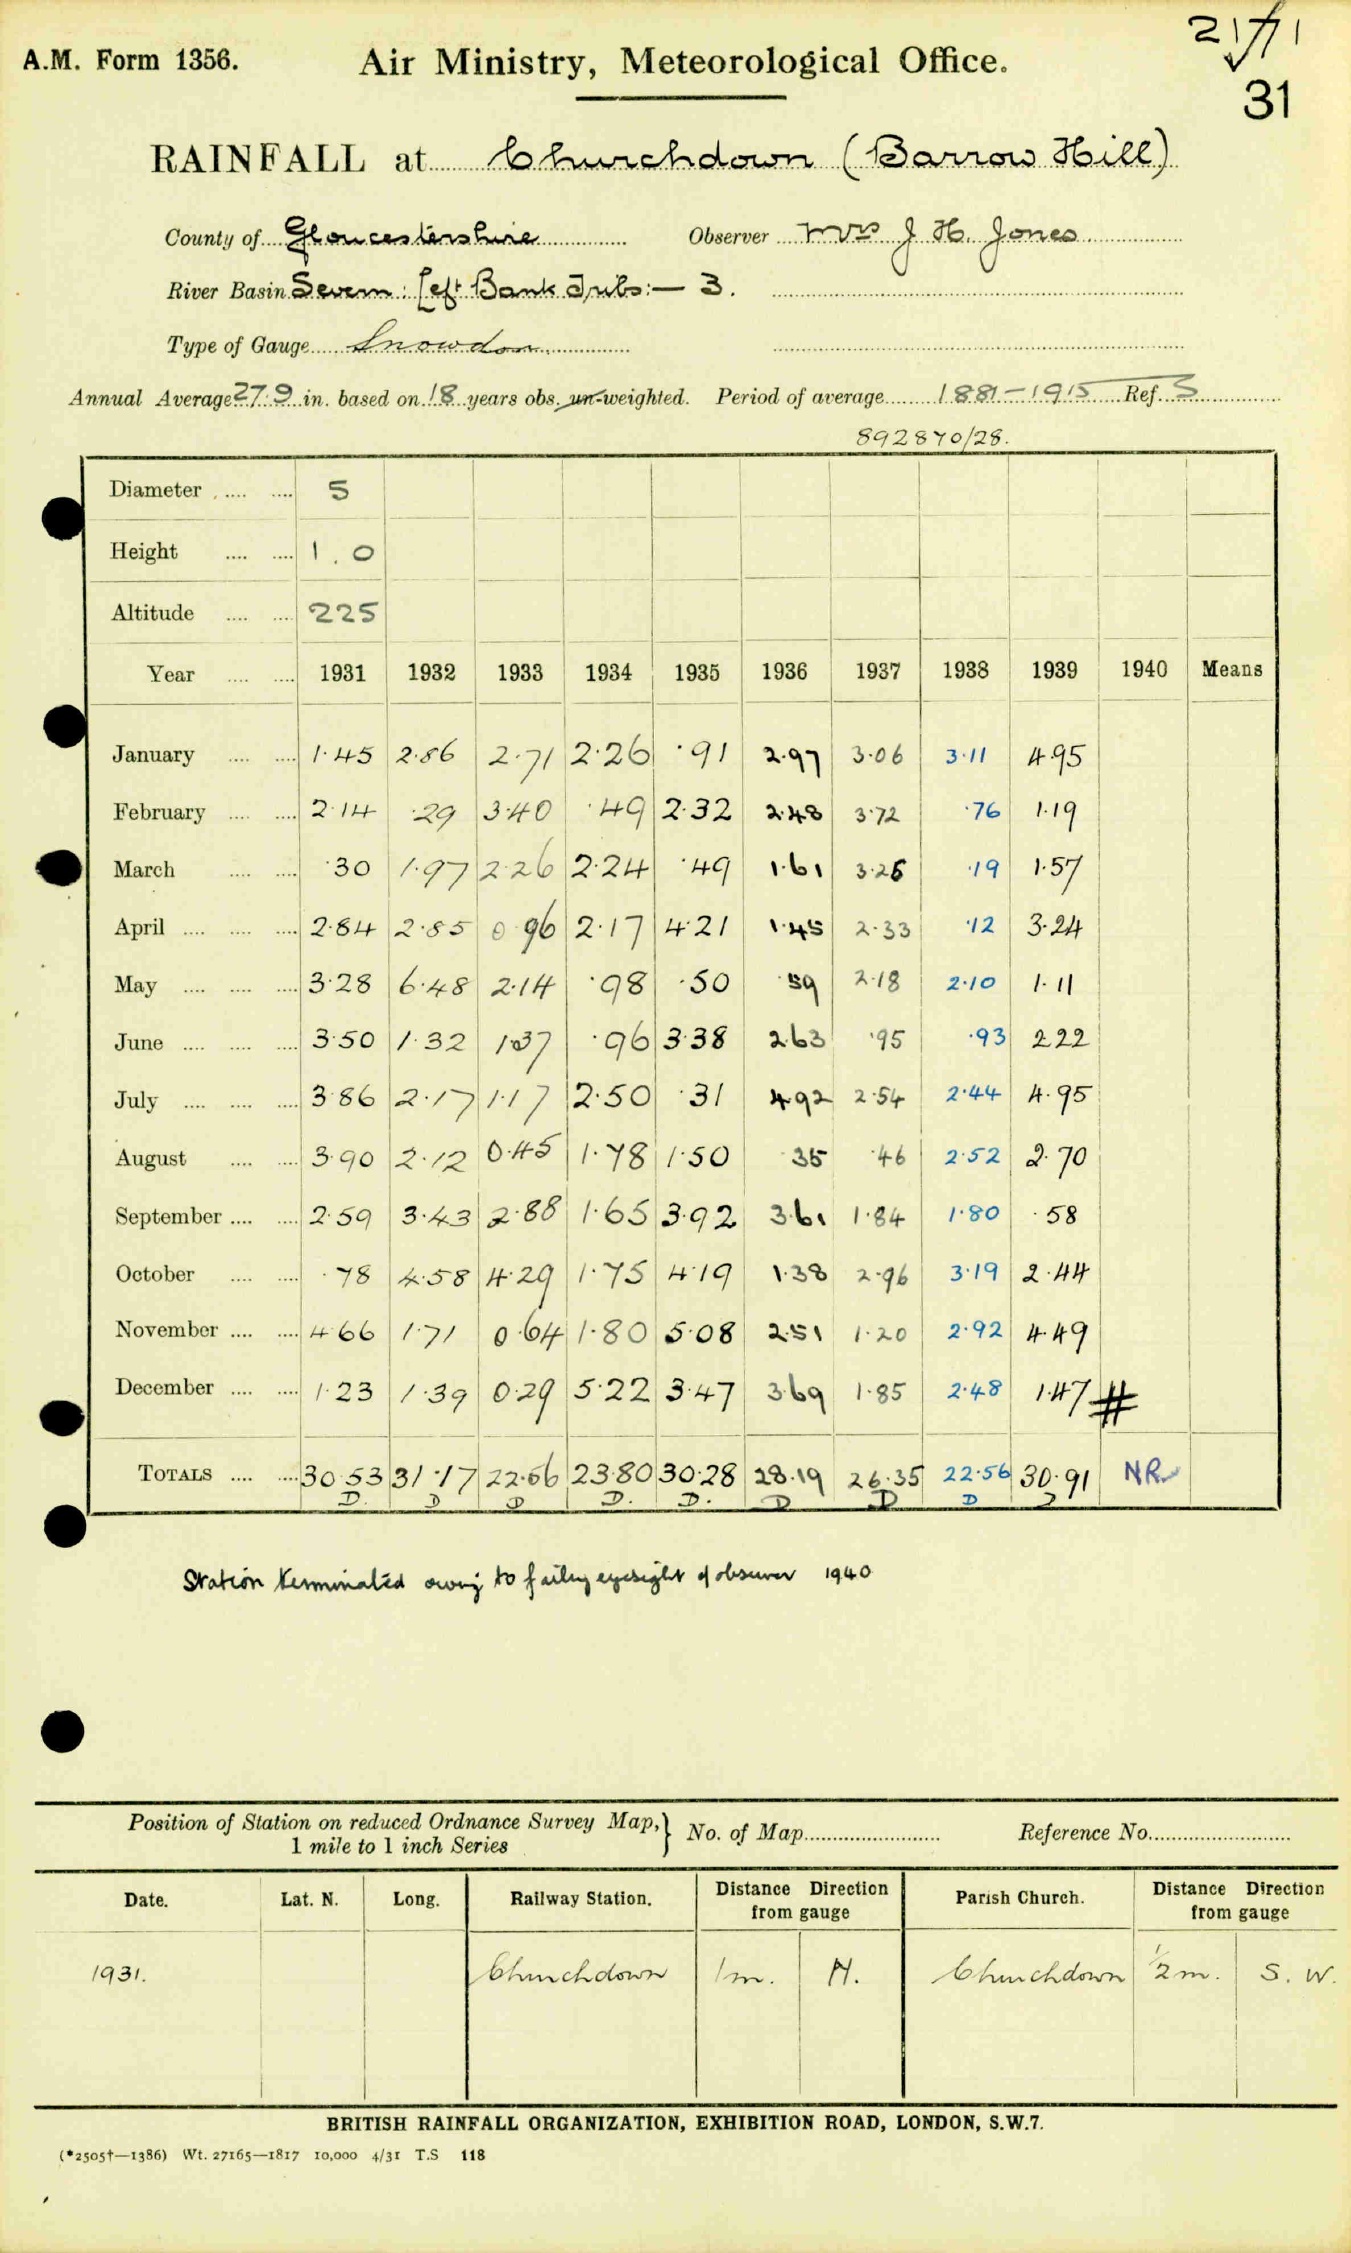 A.M. Form 1356. Air Ministry, Meteorological Office.
31
RAINFALL at Churchdown (Barrow Hill)
County of Gloucestershire Observer Mrs J. H. Jones
River Basin Severn: Left Bank Tribs:— 3.
Type of Gauge Snowdon
Annual Average 27.9 in. based on 18 years obs. un-weighted. Period of average 1881-1915 Ref. S
892870/28.
Diameter 5
Height 1.0
Altitude 225
Year 1931 1932 1933 1934 1935 1936 1937 1938 1939 1940 Means
January 1.45 2.86 2.71 2.26 .91 2.97 3.06 3.11 4.95
February 2.14 .29 3.40 .49 2.32 2.48 3.72 .76 1.19
March .30 1.97 2.26 2.24 .49 1.61 3.26 .19 1.57
April 2.84 2.85 0.96 2.17 4.21 1.45 2.33 .12 3.24
May 3.28 6.48 2.14 .98 .50 .59 2.18 2.10 1.11
June 3.50 1.32 1.37 .96 3.38 2.63 .95 .93 2.22
July 3.86 2.17 1.17 2.50 .31 4.92 2.54 2.44 4.95
August 3.90 2.12 0.45 1.78 1.50 .35 .46 2.52 2.70
September 2.59 3.43 2.88 1.65 3.92 3.61 1.84 1.80 .58
October .78 4.58 4.29 1.75 4.19 1.38 2.96 3.19 2.44
November 4.66 1.71 0.64 1.80 5.08 2.51 1.20 2.92 4.49
December 1.23 1.39 0.29 5.22 3.47 3.69 1.85 2.48 1.47 #
TOTALS 30.53 31.17 22.56 23.80 30.28 28.19 26.35 22.56 30.91 NR
D. D D D. D. D D D D
Station terminated owing to failing eyesight of observer 1940
Position of Station on reduced Ordnance Survey Map, } No. of Map Reference No.
1 mile to 1 inch Series
Date. Lat. N. Long. Railway Station. Distance Direction from gauge Parish Church. Distance Direction from gauge
1931. Churchdown 1m. N. Churchdown ½ m. S. W.
BRITISH RAINFALL ORGANIZATION, EXHIBITION ROAD, LONDON, S.W.7.
(*2505†—1386) Wt. 27165—1817 10,000 4/31 T.S 118